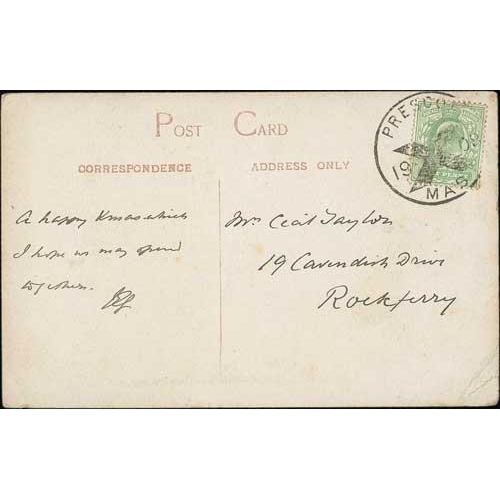 POST CARD
CORRESPONDENCE
ADDRESS ONLY
A happy Xmas which
I hope we may spend
together.
Mr. Cecil Taylor
19 Cavendish Drive
Rockferry
PRESCO
19 08
XMAS